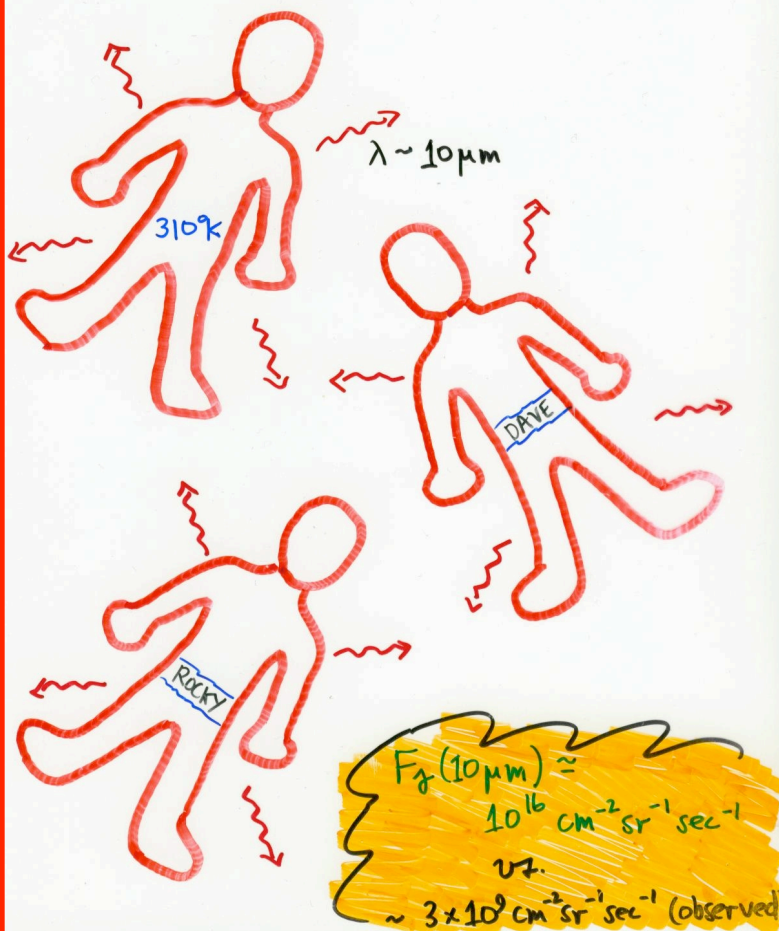 λ ~ 10 μm
310°K
DAVE
ROCKY
F_γ (10 μm) ≃
10¹⁶ cm⁻² sr⁻¹ sec⁻¹
vs.
~ 3 × 10⁹ cm⁻² sr⁻¹ sec⁻¹ (observed)